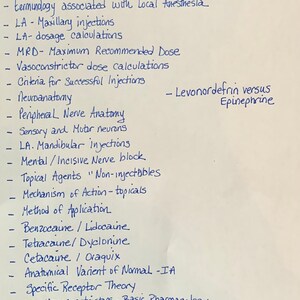 - terminology associated with Local Anesthesia
- LA - Maxillary injections
- LA- dosage calculations
- MRD- Maximum Recommended Dose
- Vasoconstrictor dose calculations
- Criteria for Successful Injections
- Levonordefrin versus
Epinephrine
- Neuroanatomy
- Peripheral Nerve Anatomy
- Sensory and Motor neurons
- LA. Mandibular injections
- Mental/Incisive Nerve block
- Topical Agents "Non-injectables
- Mechanism of Action-topicals
- Method of Application
- Benzocaine/Lidocaine
- Tetracaine/Dyclonine
- Cetacaine/Oraquix
- Anatomical Varient of Normal -IA
- Specific Receptor Theory
Basic